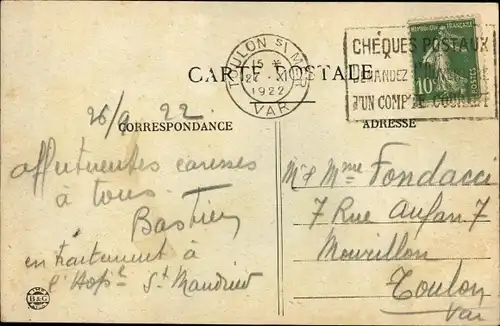 TOULON S/ MER
15 *
24 XI
1922
VAR
CHÈQUES POSTAUX
DEMANDEZ L'OUVERTURE
D'UN COMPTE COURANT
REPUBLIQUE FRANÇAISE
10
POSTES
CARTE POSTALE
26/9 22
CORRESPONDANCE
ADRESSE
affectueuses caresses
à tous.
Bastien
en traitement à
l'Hop.^l St Mandrier
B&G
M^r & M^me Fondacci
7 Rue 7
Mourillon
Toulon
Var